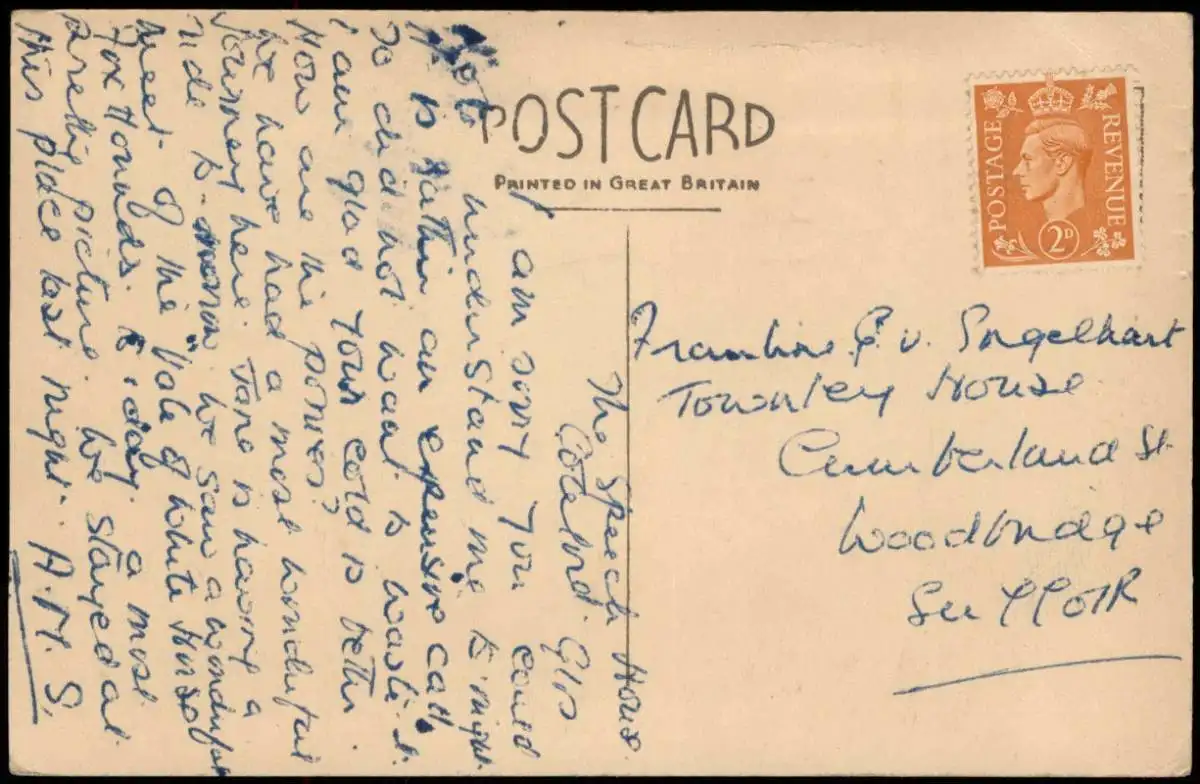 POST CARD
PRINTED IN GREAT BRITAIN
POSTAGE
REVENUE
2D
The Speech House
Coleford. Glos
I am sorry you could
not understand me to night
It is rather an expensive call
So did not want to waste it.
I am glad your cold is better
How are the ponies?
We have had a most wonderful
Journey here. Jane is having a
ride to-morrow we saw a wonderful
meet of the "Vale of White Horse"
Fox Hounds. to-day. a most
pretty picture. We stayed at
this place last night. A.M.S.
E. v. Engelhart
Townley House
Cumberland St.
Woodbridge
Suffolk